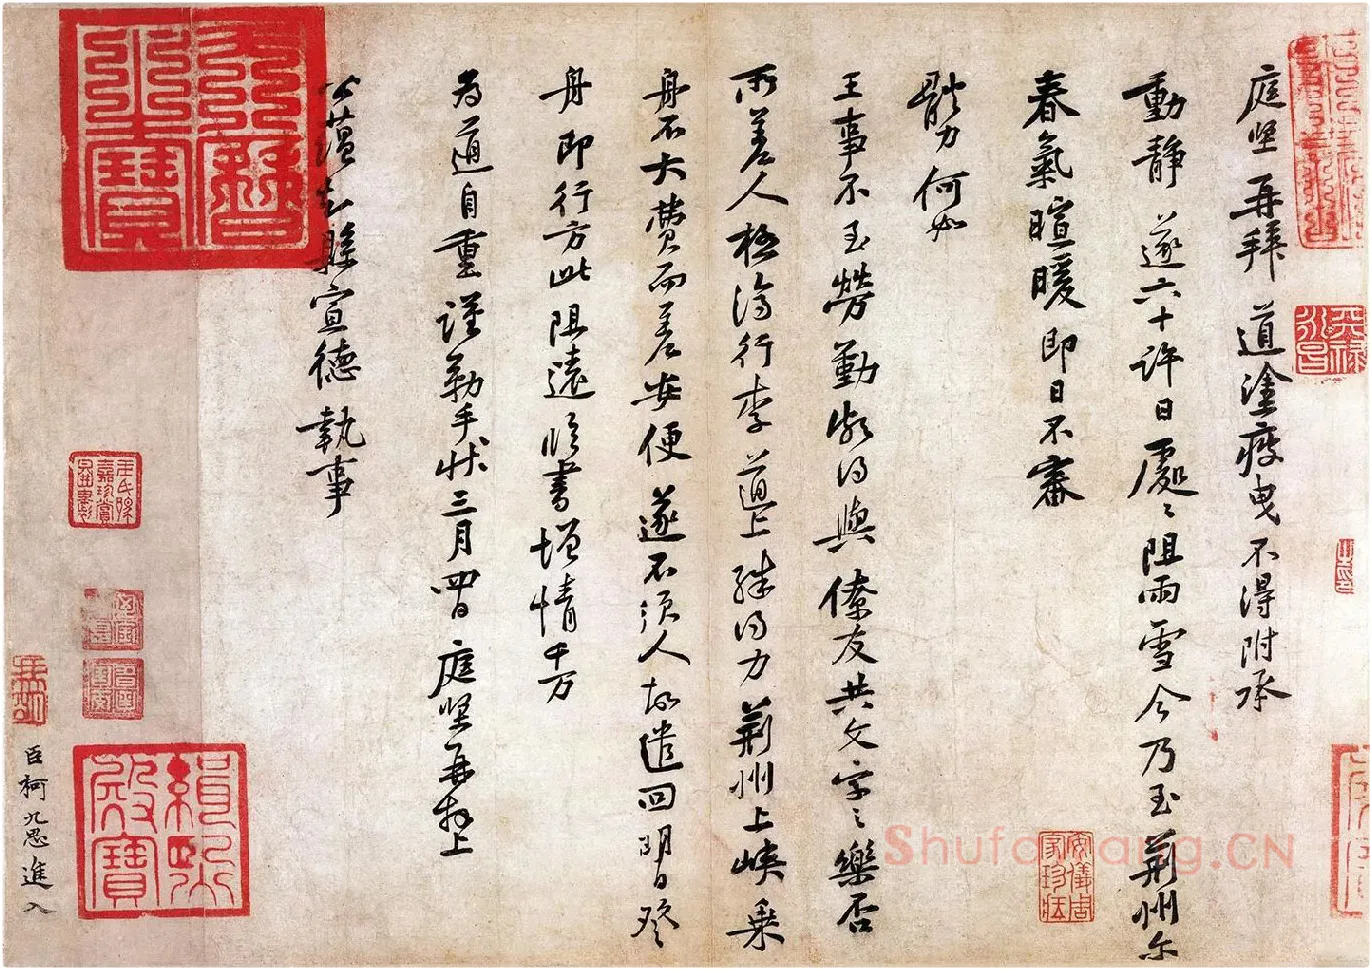 庭堅再拜 道塗疲曳不得附承
動靜遂六十許日處〻阻雨雪今乃至荊州尔
春氣暄暖即日不審
體力何如
王事不至勞勤頗得與僚友共文字之樂否
所差人極濟行李道上殊得力荊州上峽乘
舟不大費而差安便遂不須人故遣回明日發
舟即行方此阻遠臨書增情千万
為道自重謹勒手狀三月四日庭堅再拜上
公蘊知縣宣德執事
臣柯九思進入
天曆之寶
緝熙殿寶
安儀周家珍藏